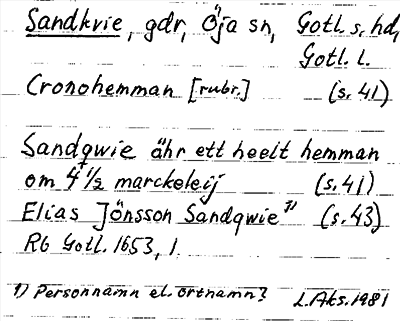 Sandkvie, gdr, Öja sn, Gotl. s. hd,
Gotl. l.
Cronohemman [rubr.] (s. 41)
Sandqwie ähr ett heelt hemman
om 4 1/2 marckeleij (s. 41)
Elias Jönsson Sandqwie 1) (s. 43)
RG Gotl. 1653, 1
1) Personnamn el. ortnamn? L. Aks. 1981